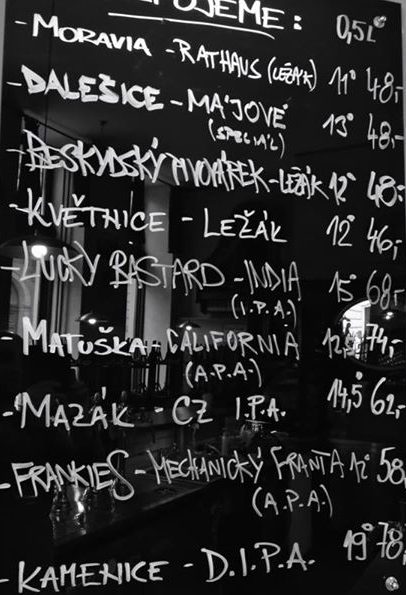 ČEPUJEME: 0,5L
- MORAVIA - RATHAUS (LEŽÁK) 11° 48,-
- DALEŠICE - MÁJOVÉ 13° 48,-
(SPECIÁL)
- BESKYDSKÝ PIVOVÁREK - LEŽÁK 12° 48,-
- KVĚTNICE - LEŽÁK 12° 46,-
- LUCKY BASTARD - INDIA 15° 68,-
(I.P.A.)
- MATUŠKA - CALIFORNIA 12,5° 74,-
(A.P.A.)
- MAZÁK - CZ I.P.A. 14,5° 62,-
- FRANKIES - MECHANICKÝ FRANTA 12° 58,
(A.P.A.)
- KAMENICE - D.I.P.A. 19° 78,